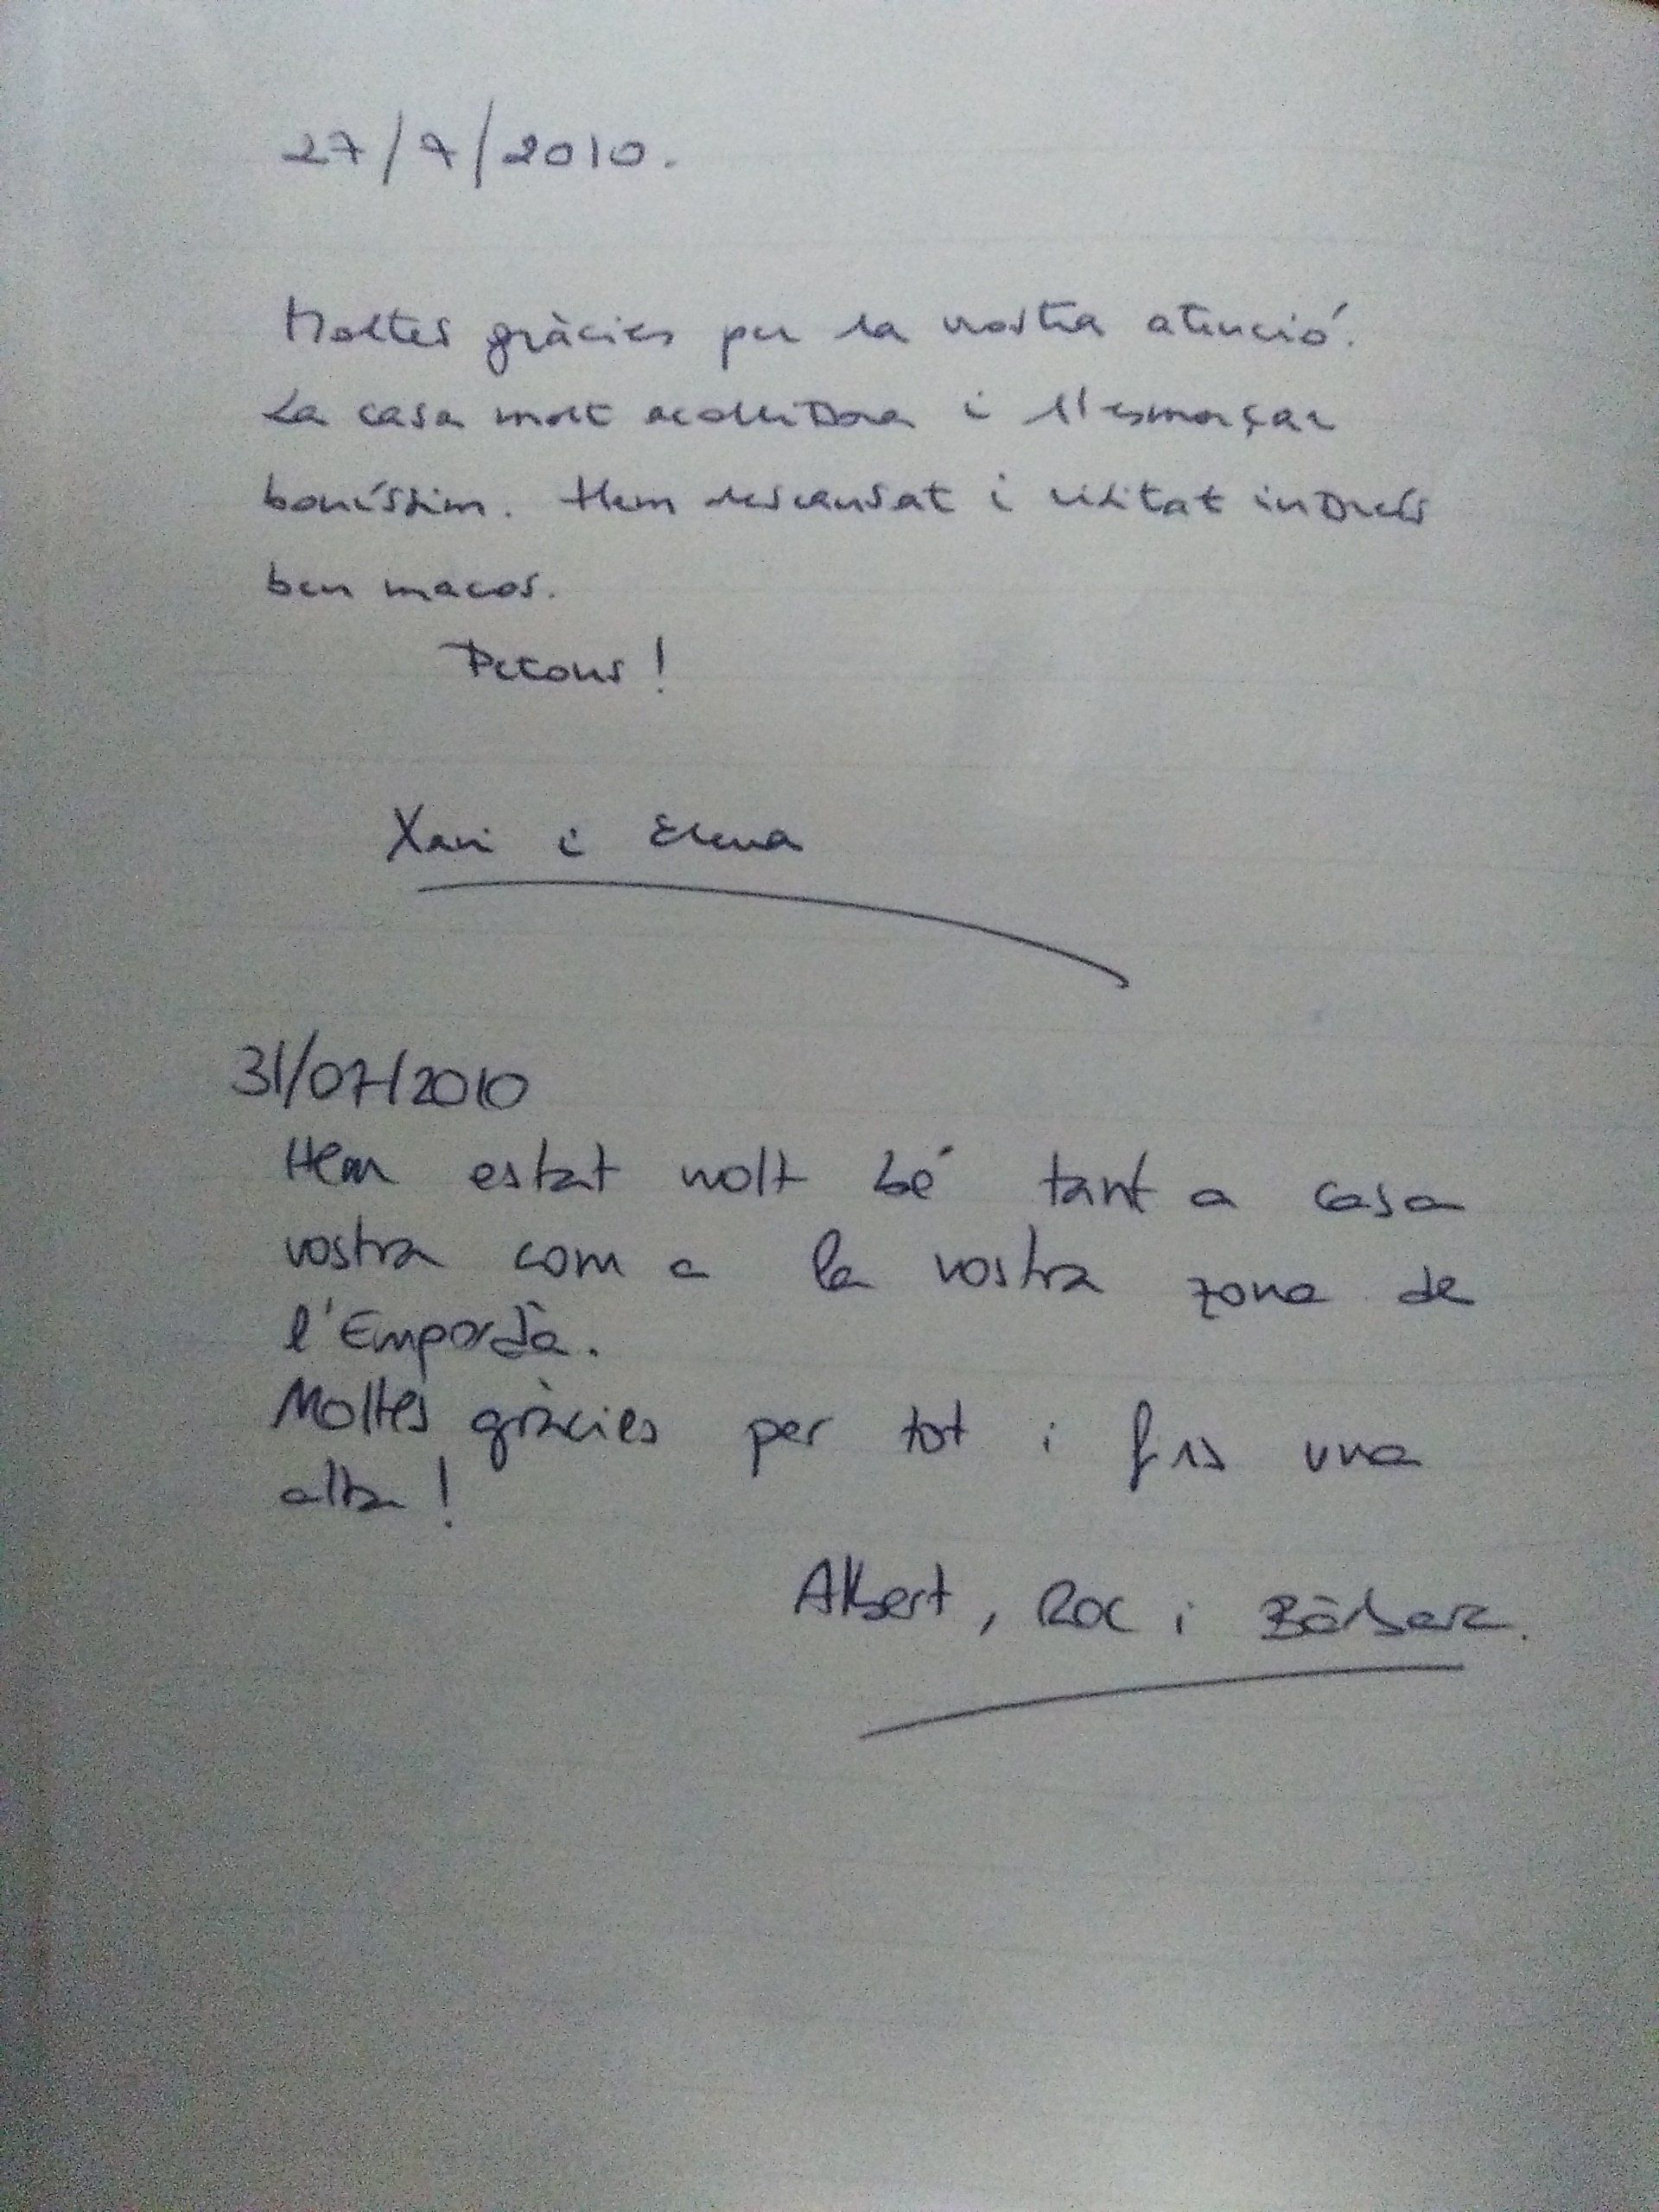 27/7/2010.
Moltes gràcies per la vostra atenció.
La casa molt acollidora i l'esmorçar
boníssim. Hem descansat i visitat indrets
ben macos.
Petons!
Xavi i Elena
31/07/2010
Hem estat molt bé tant a casa
vostra com a la vostra zona de
l'Empordà.
Moltes gràcies per tot i fins una
altra!
Albert, Roc i Bàrbara.